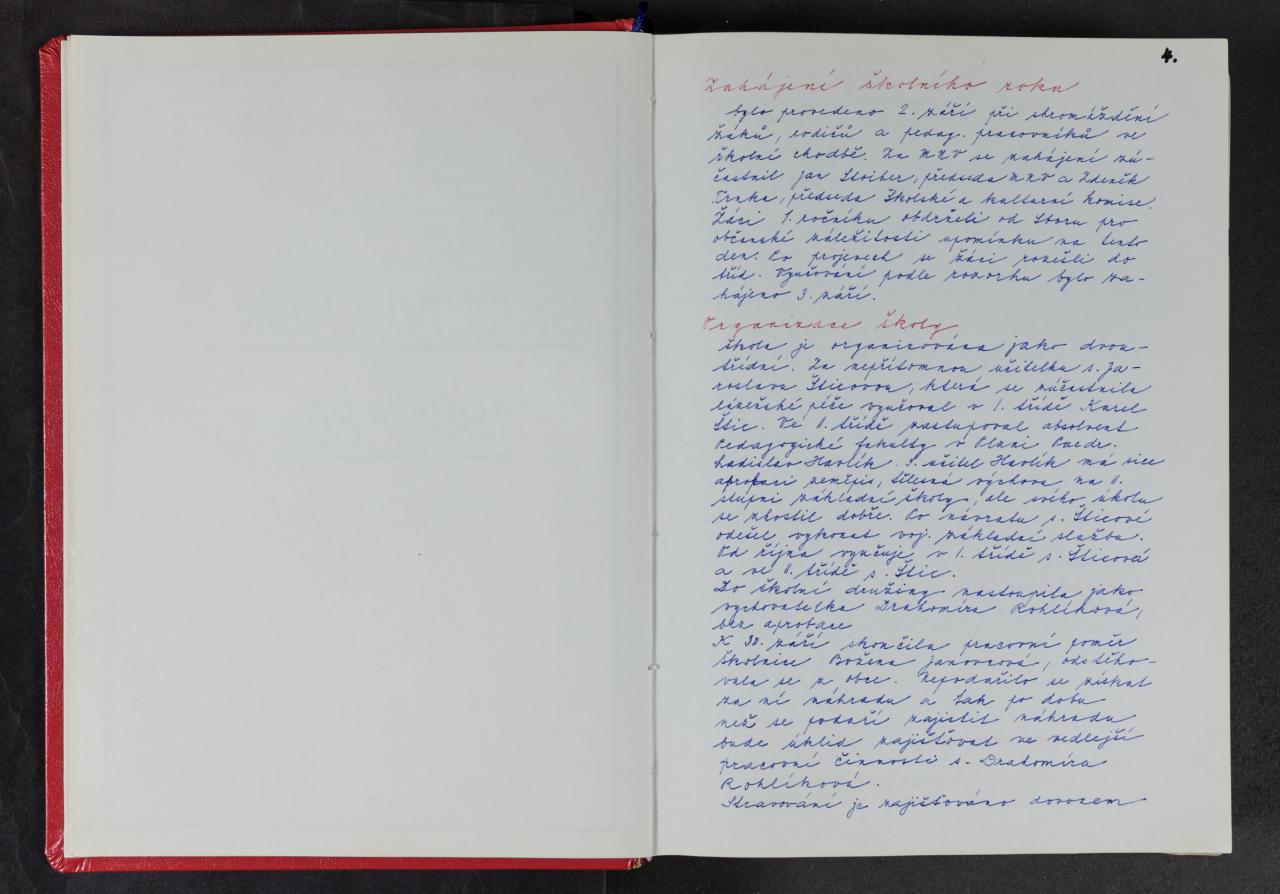 4.
Zahájení školního roku
bylo provedeno 2. září při shromáždění
žáků, rodičů a pedag. pracovníků ve
školní chodbě. Za MNV se zahájení zú-
častnil Jan Stoiber, předseda MNV a Zdeněk
Trnka, předseda školské a kulturní komise.
Žáci 1. ročníku obdrželi od Sboru pro
občanské záležitosti upomínku na tento
den. Po projevech se žáci rozešli do
tříd. Vyučování podle rozvrhu bylo za-
hájeno 3. září.
Organizace školy
škola je organizována jako dvou-
třídní. Za nepřítomnou učitelku s. Ja-
roslavu Šticovou, která se zúčastnila
lázeňské péče vyučoval v I. třídě Karel
Štic. Ve II. třídě zastupoval absolvent
Pedagogické fakulty v Plzni Paedr.
Ladislav Havlík. S. učitel Havlík má sice
aprobaci zeměpis, tělesná výchova na II.
stupni základní školy, ale svého úkolu
se zhostil dobře. Po návratu s. Šticové
odešel vykonat voj. základní službu.
Od října vyučuje v I. třídě s. Šticová
a ve II. třídě s. Štic.
Do školní družiny nastoupila jako
vychovatelka Drahomíra Rohlíková,
bez aprobace
K 30. září skončila pracovní poměr
školnice Božena Janovcová, odstěho-
vala se z obce. Nepodařilo se získat
za ní náhradu a tak po dobu
než se podaří zajistit náhradu
bude úklid zajišťovat ve vedlejší
pracovní činnosti s. Drahomíra
Rohlíková.
Stravování je zajišťováno dovozem